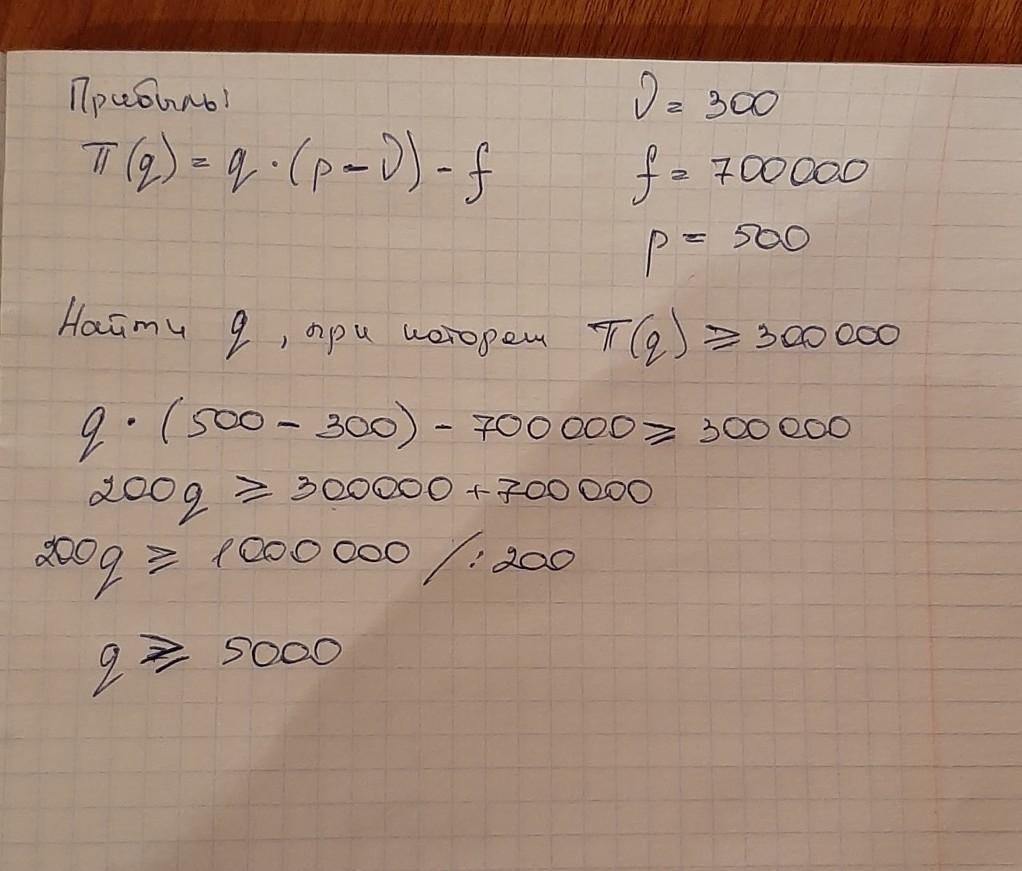 Прибыль!
π(q) = q · (p - υ) - f
υ = 300
f = 700000
p = 500
Найти q, при котором π(q) ⩾ 300 000
q · (500 - 300) - 700 000 ⩾ 300 000
200q ⩾ 300000 + 700 000
200q ⩾ 1000 000 /: 200
q ⩾ 5000